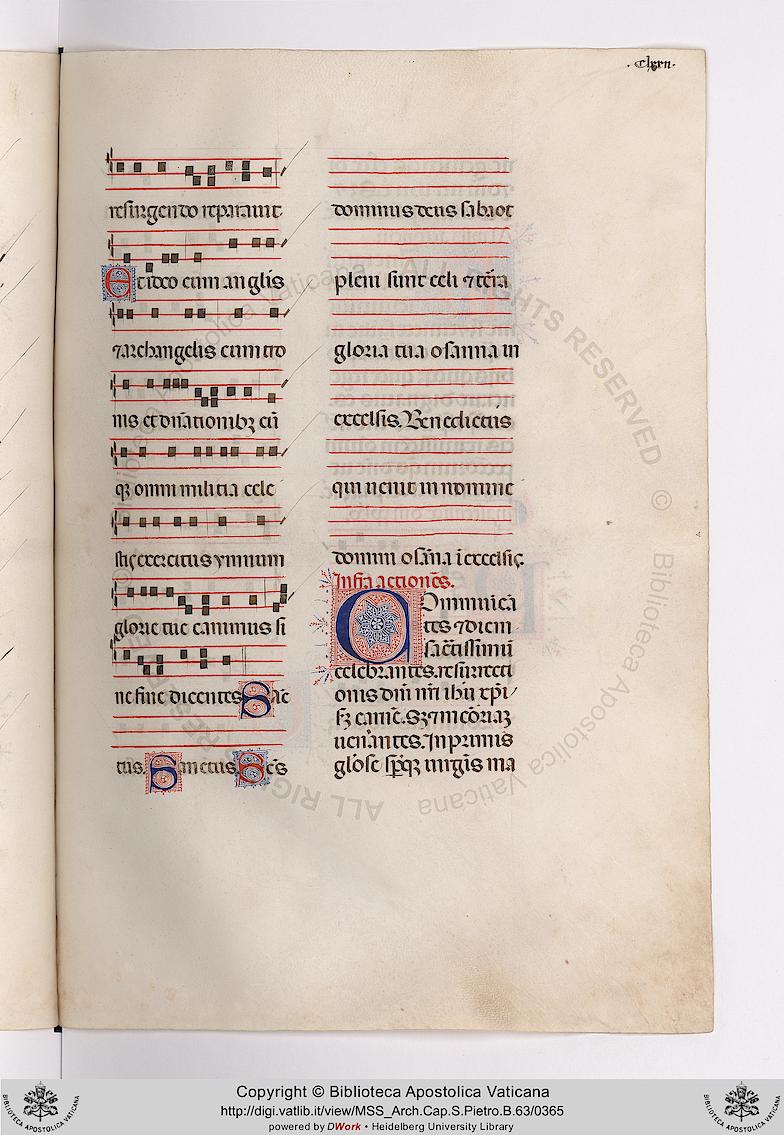 .clxxii.
resurgendo reparauit
Et ideo cum angelis
⁊archangelis cum tro
nis et dn̄ationibꝫ cū
qꝫ omni militia cele
stis exercitus ymnum
glorie tue canimus si
ne fine dicentes Sāc
tus. Sanctus Sc̄s
dominus deus sabaot
pleni sunt celi ⁊ t̄ra
gloria tua osanna in
excelsis. Benedictus
qui uenit in nomine
domini osāna ī excelsis.
Infra actiones.
Communicā
tes ⁊ diem
sac̄tissimū
celebrantes. resurrecti
onis dn̄i nr̄i ih̄u xp̄i
s carnē. Sꝫ ⁊ mēoriaꝫ
uen̄antes. In primis
glōse sp̄qꝫ uirgīs ma
Copyright © Biblioteca Apostolica Vaticana
http://digi.vatlib.it/view/MSS_Arch.Cap.S.Pietro.B.63/0365
powered by DWork • Heidelberg University Library
BIBLIOTECA APOSTOLICA VATICANA
BIBLIOTECA APOSTOLICA VATICANA
Biblioteca Apostolica Vaticana ALL RIGHTS RESERVED ©
Biblioteca Apostolica Vaticana ALL RIGHTS RESERVED ©